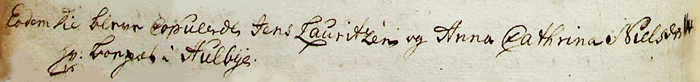 Eodem die bleve Copulerede Jens Lauritzen og Anna Cathrina Nielsdatt
i Aulbye.